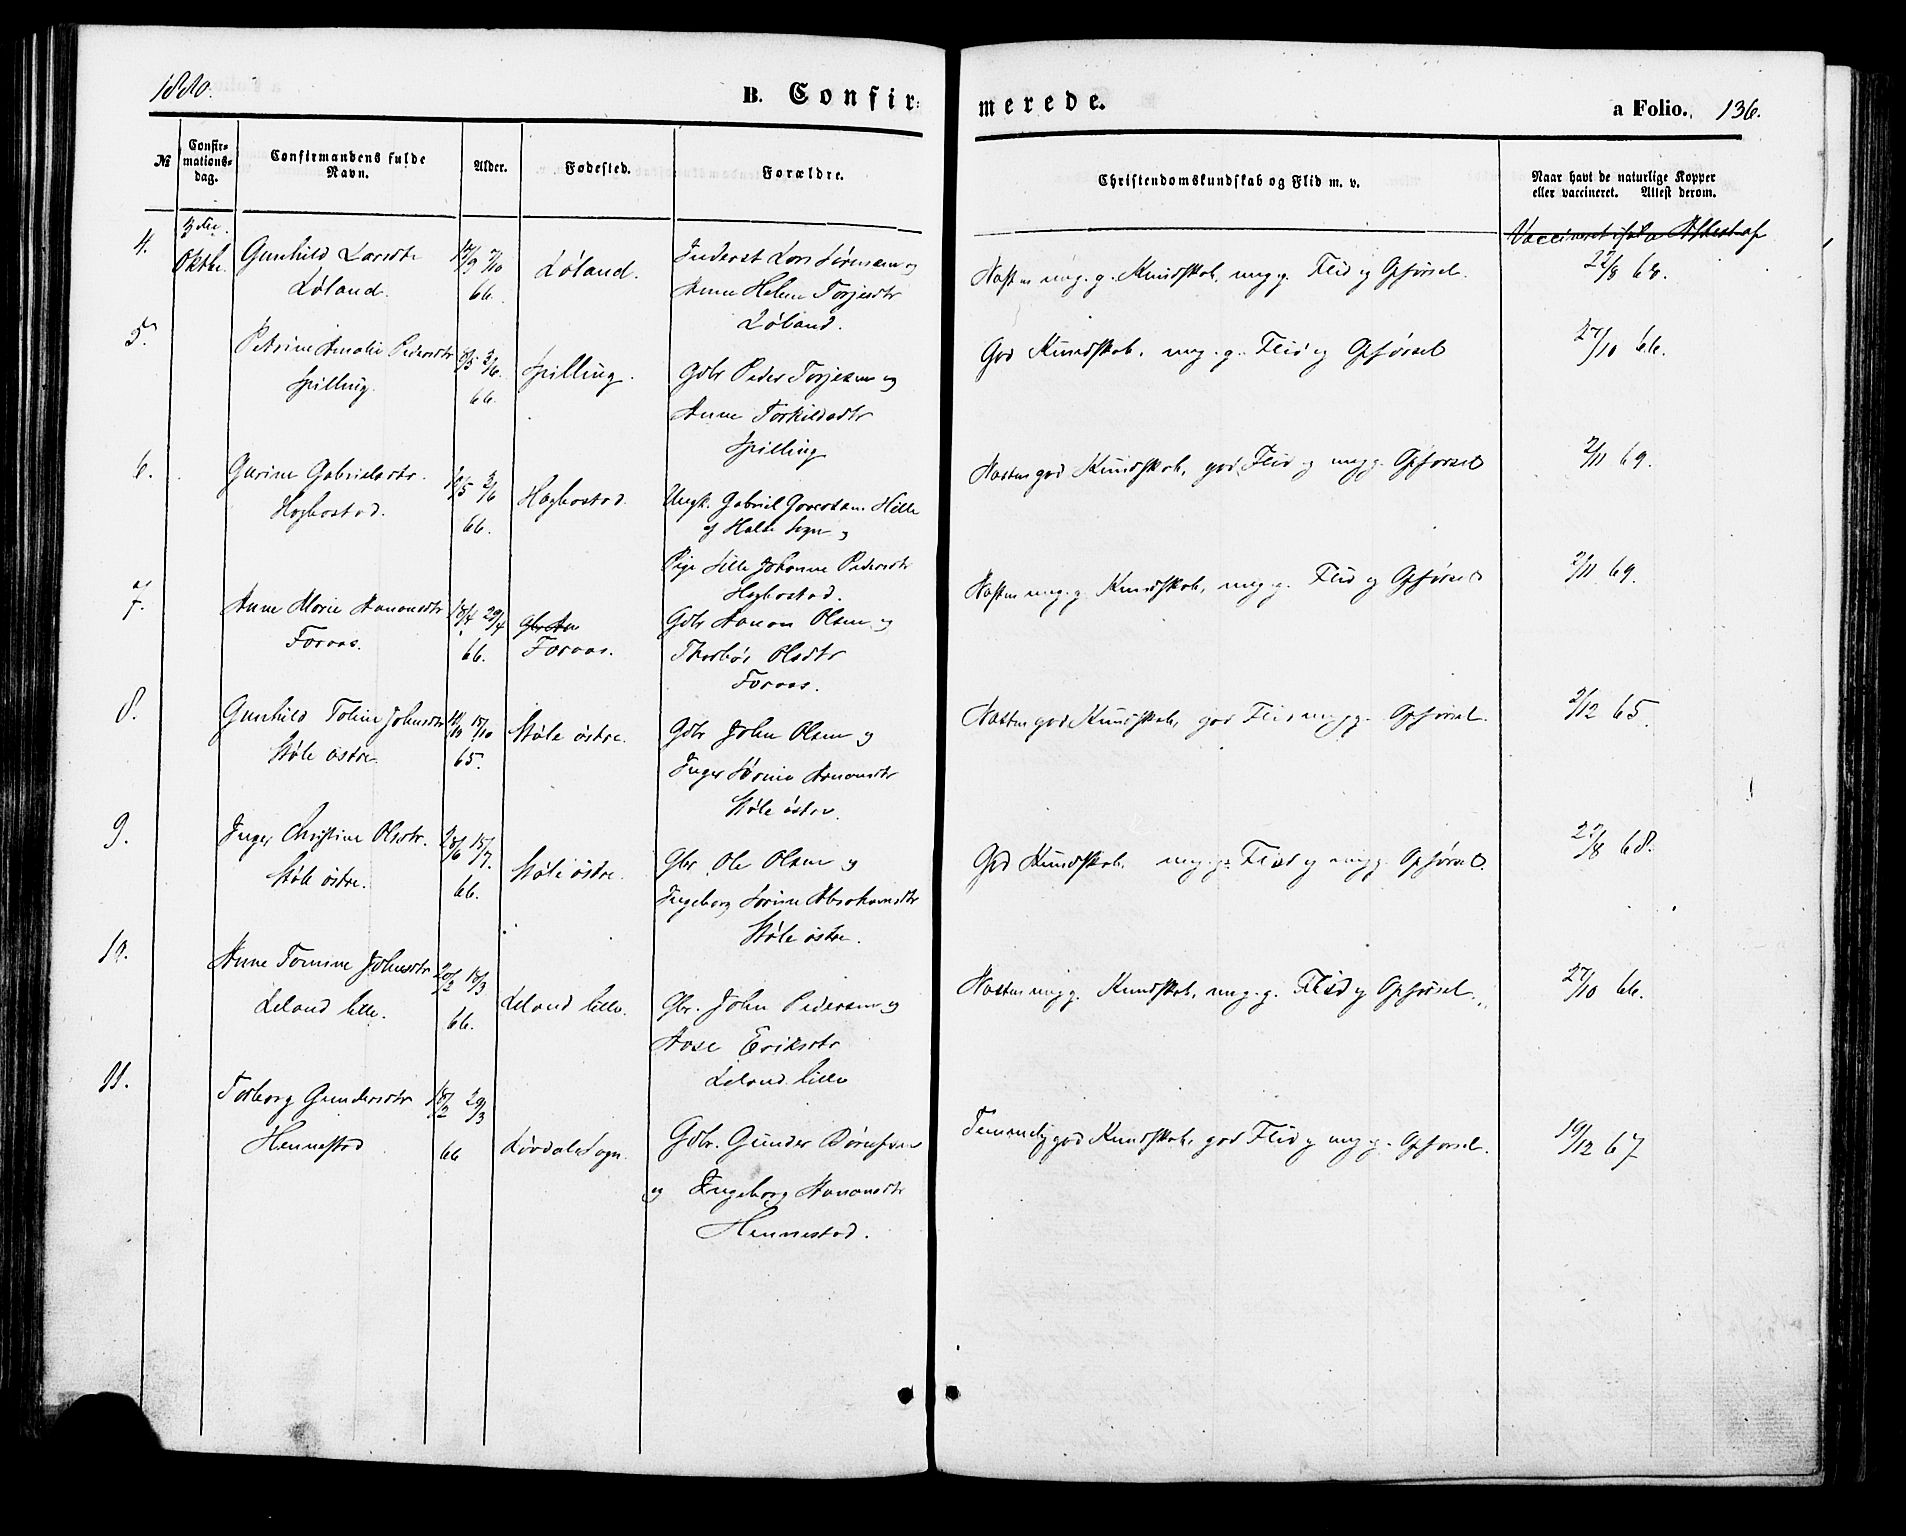 1880.
B. Confir=
merede.
a Folio. 136.
№
Confir=
mations=
dag.
Confirmandens fulde
Navn.
Alder.
Fødested.
Forældre.
Christendomskundskab og Flid m. v.
Naar havt de naturlige Kopper
eller vaccineret. Attest derom.
Vaccineret ifølge Attest af
4.
3die
Oktbr.
Gunhild Larsdtr
Løland.
12/9 7/10
66.
Løland.
Inderst Lars Sørensen og
Anne Helene Torjesdtr
Løland.
Næsten meg. g. Kundskab, meg. g. Flid og Opførsel.
22/8 68.
5.
Petrine Amalie Pedersdtr
Spilling.
8/5 3/6
66.
Spilling.
Gdbr Peder Torjesen og
Anne Torkildsdtr
Spilling
God Kundskab, meg. g. Flid og Opførsel
27/10 66.
6.
Gurine Gabrielsdtr.
Høgbostad.
12/5 3/6
66.
Høgbostad.
Ungk. Gabriel Goversen Hille
af Halse Sogn og
Pige Sille Johanne Pedersdtr
Høgbostad.
Næsten god Kundskab, god Flid og meg g. Opførsel
2/11 69.
7.
Anne Marie Aanonsdtr
Foraas.
18/4 29/4
66.
Foraas.
Gdbr Aanon Olsen og
Thorbør Olsdtr
Foraas.
Næsten meg. g. Kundskab, meg. g. Flid og Opførsel
2/11 69.
8.
Gunhild Toline Johnsdtr
Støle østre.
10/10 15/10
65.
Støle østre.
Gdbr John Olsen og
Inger Sørine Aanonsdtr
Støle østre.
Næsten god Kundskab, god Flid meg g. Opførsel.
2/12 65.
9.
Inger Christine Olsdtr.
Støle østre.
28/6 15/7.
66.
Støle østre.
Gbr. Ole Olsen og
Ingeborg Sørine Absolonsdtr
Støle østre.
God Kundskab, meg. g. Flid og meg g. Opførsel.
27/8 68.
10.
Anne Tomine Johnsdtr
Leland lille.
20/2 18/3
66.
Leland lille.
Gbr. John Pedersen og
Aase Eriksdtr
Leland lille
Næsten meg g. Kundskab, meg. g. Flid og Opførsel.
27/10 66.
11.
Torborg Gundersdtr
Hennestad
18/2 29/3
66
Lørdals Sogn.
Gdbr. Gunder Børufsen
og Ingeborg Aanonsdtr
Hennestad.
Temmelig god Kundskab, god Flid og meg g. Opførsel.
19/12 67